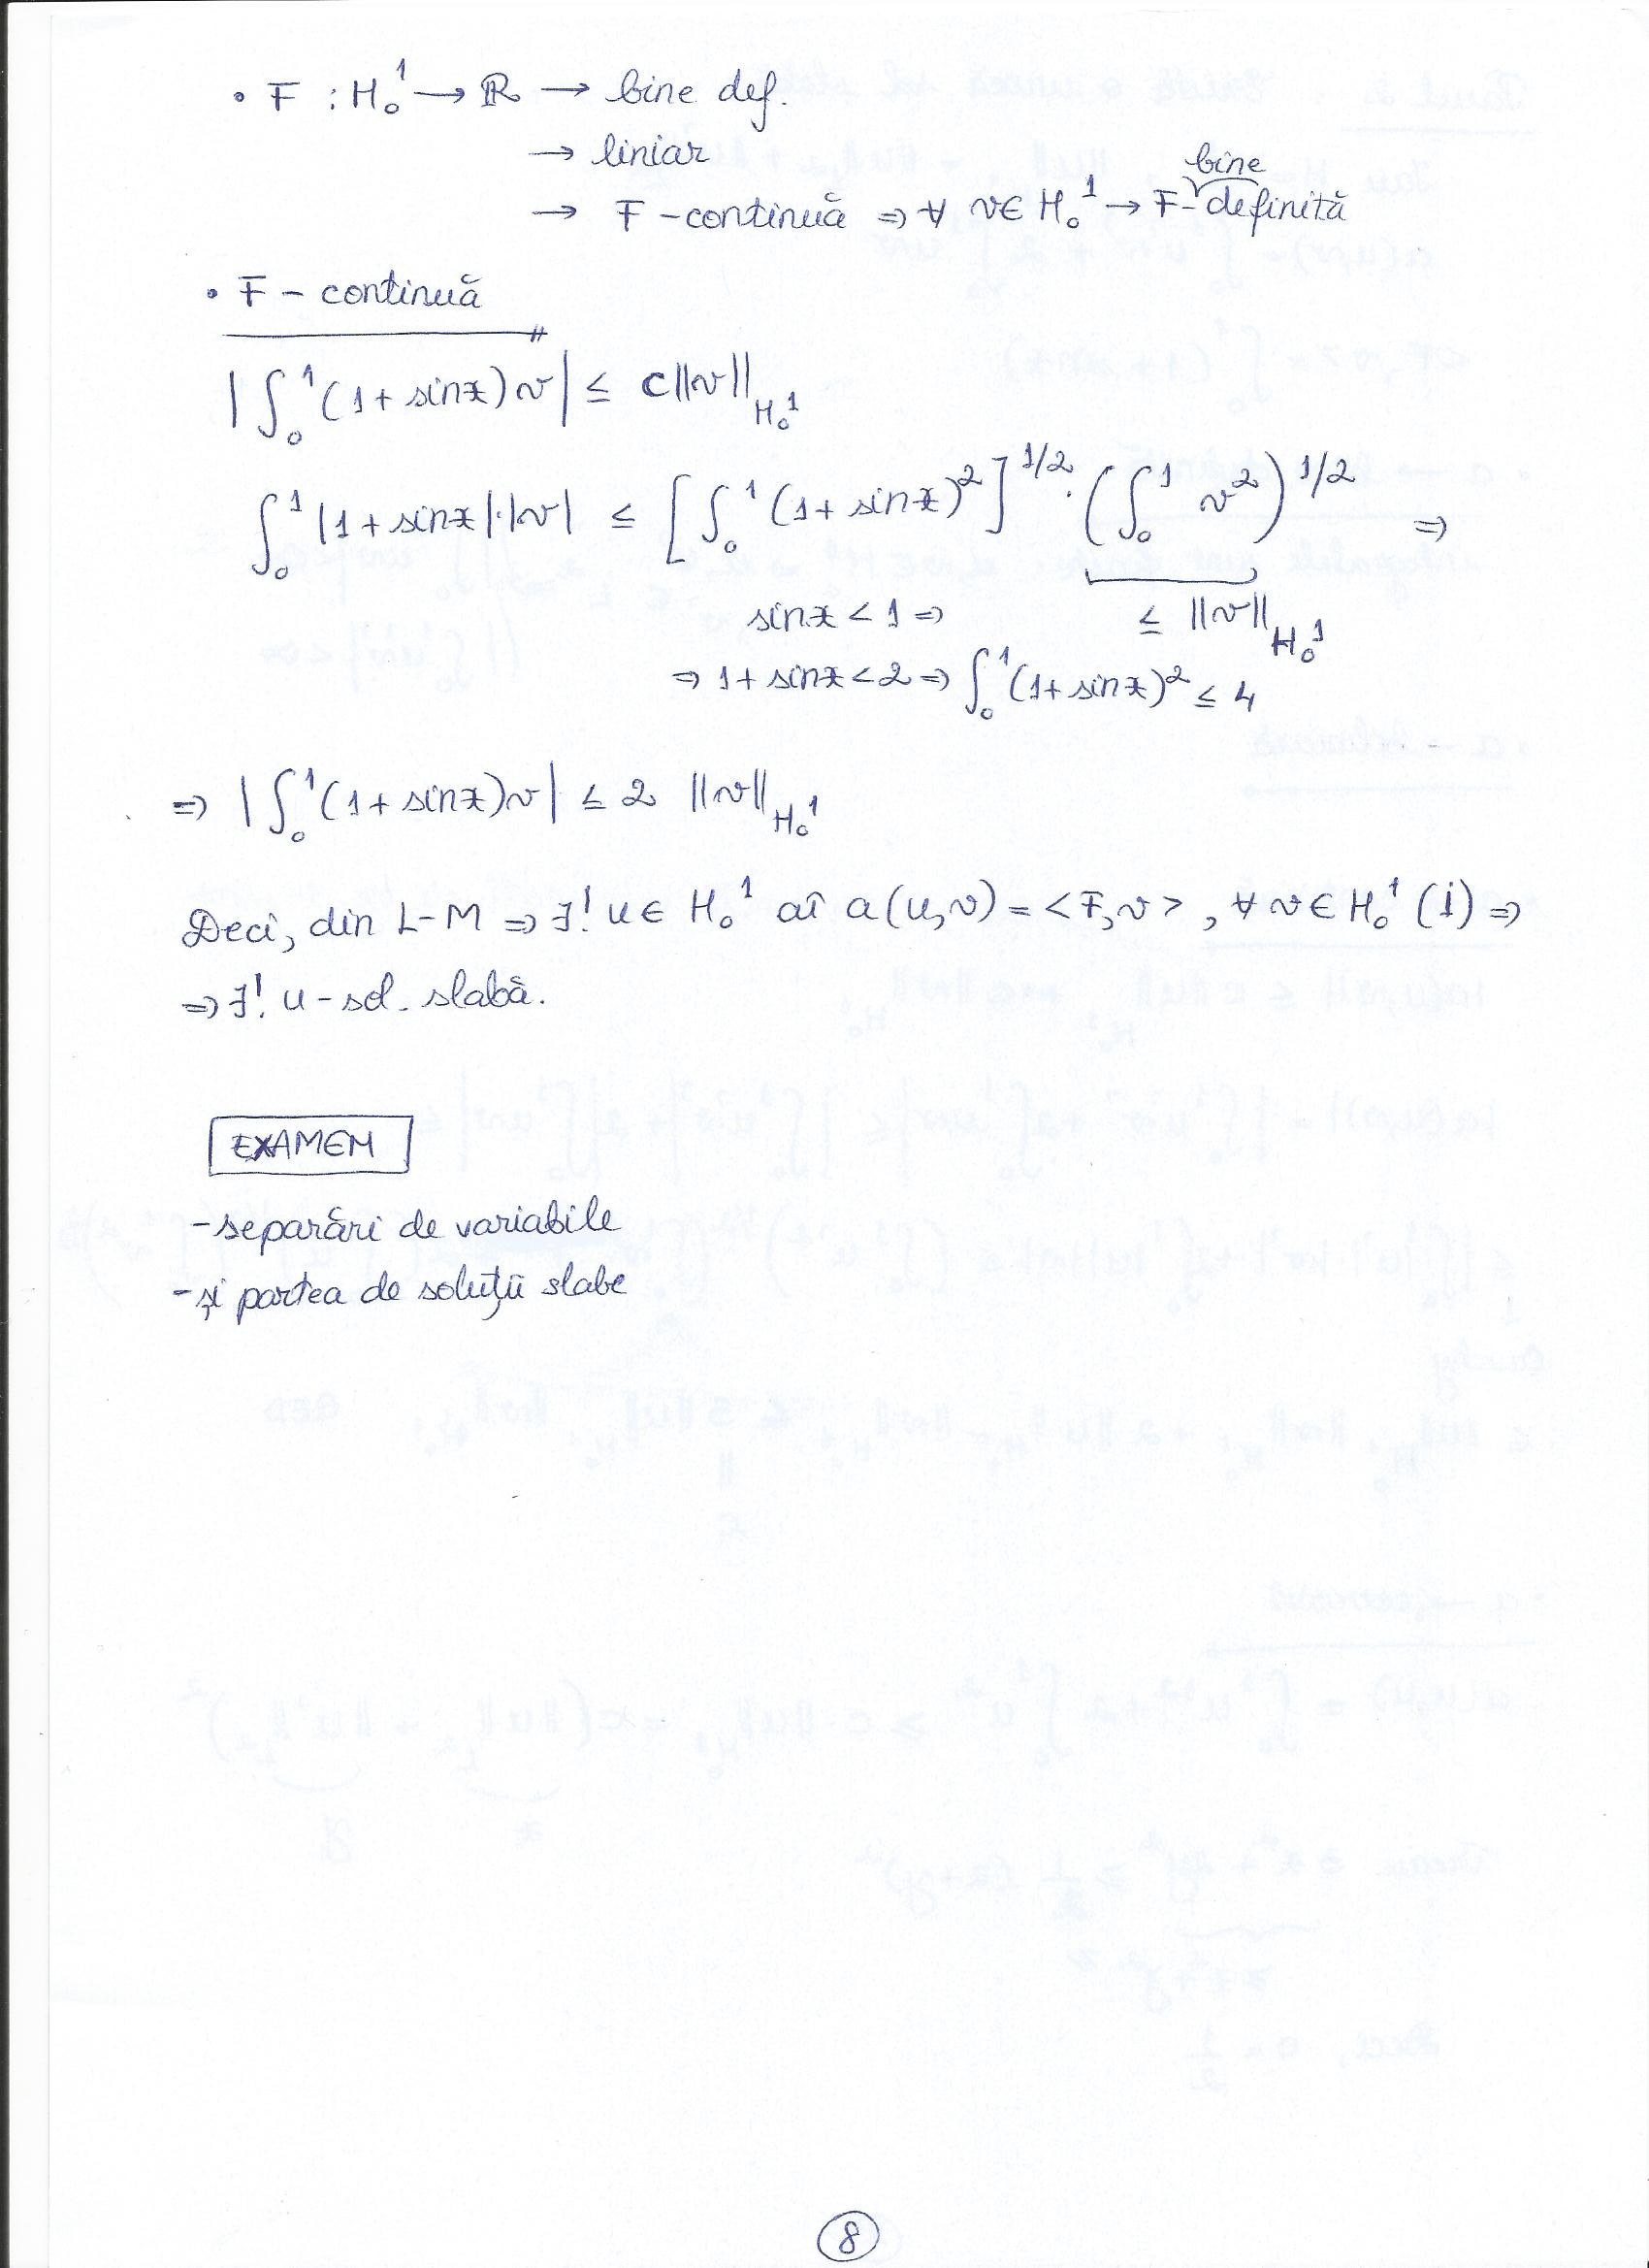 • F : H₀¹ → ℝ → bine def.
→ liniar
bine
→ F - continuă ⇒ ∀ v ∈ H₀¹ → F - definită
• F - continuă
|∫₀¹ (1 + sinx) v| ≤ C||v||_{H₀¹}
∫₀¹ |1 + sinx|·|v| ≤ [∫₀¹ (1 + sinx)²]^{1/2} · (∫₀¹ v²)^{1/2} ⇒
sinx < 1 ⇒ ≤ ||v||_{H₀¹}
⇒ 1 + sinx < 2 ⇒ ∫₀¹ (1 + sinx)² ≤ 4
⇒ |∫₀¹ (1 + sinx) v| ≤ 2 ||v||_{H₀¹}
Deci, din L-M ⇒ ∃! u ∈ H₀¹ aî a(u,v) = <F,v>, ∀ v ∈ H₀¹ (i) ⇒
⇒ ∃! u - sol. slabă.
EXAMEM
- separări de variabile
- și partea de soluții slabe
8